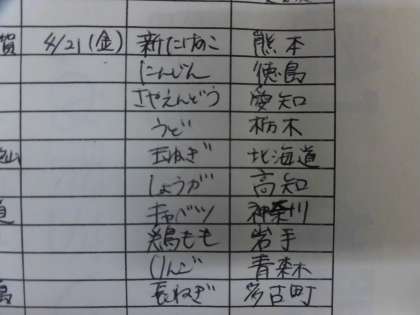 賀 4/21(金) 新たけのこ 熊本
にんじん 徳島
さやえんどう 愛知
うど 栃木
山 玉ねぎ 北海道
しょうが 高知
キャベツ 神奈川
鶏もも 岩手
りんご 青森
島 長ねぎ 多古町